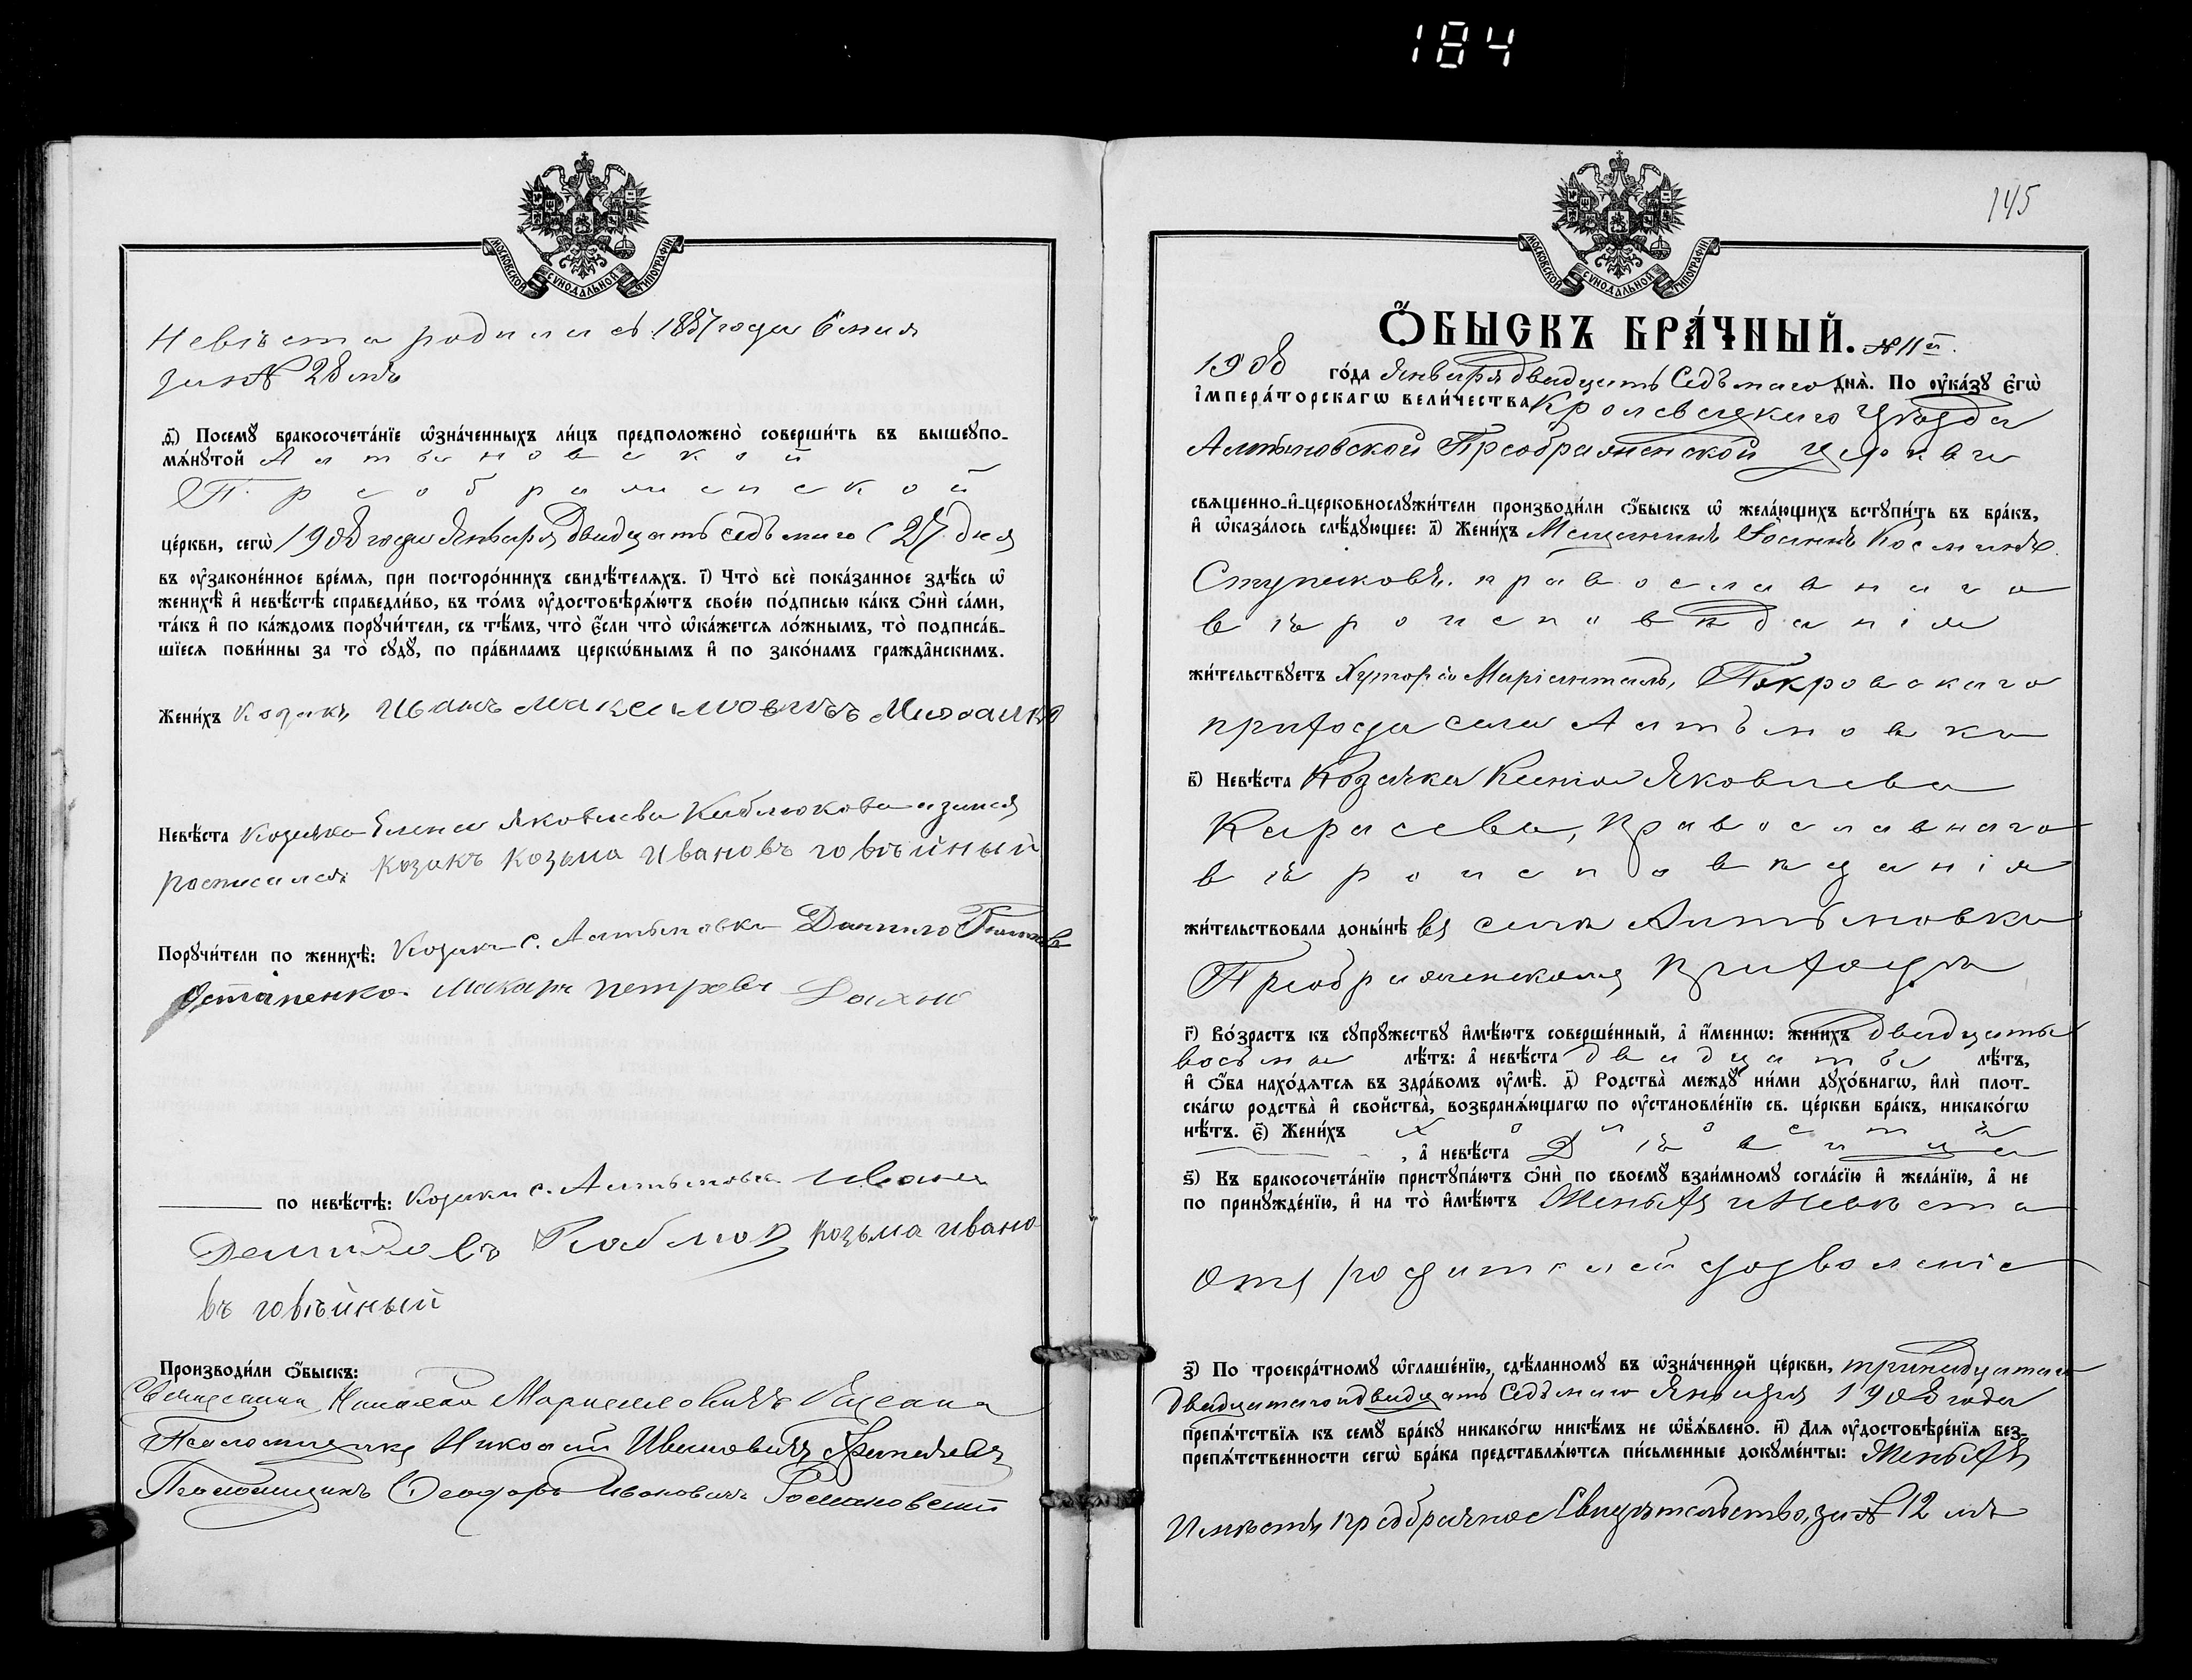 184
МОСКОВСКОЙ СѴНОДАЛЬНОЙ ТИПОГРАФІИ
Невѣста родилась 1887 года 6 мая
за № 28мъ
д҃і) Посемꙋ̀ бракосочета́нїе ѡ҆зна́ченныхъ ли́цъ предположено̀ соверши́ть въ вышеꙋпо-
мѧ́нꙋтой Алтыновской
Преображенской
це́ркви, сегѡ̀ 1908 года Января двадцать седьмого (27 дня
въ ᲂу҆зако́ненное вре́мѧ, при посторо́ннихъ свидѣ́телѧхъ. і҃) Что̀ всѐ пока́занное здѣ́сь ѡ҆
женихѣ̀ и҆ невѣ́стѣ справедли́во, въ то́мъ ᲂу҆достовѣрѧ́ютъ свое́ю по́дписью ка́къ ѻ҆нѝ са́ми,
та́къ и҆ по ка́ждомъ порꙋчи́тели, съ тѣ́мъ, что̀ є҆́сли что̀ ѡ҆ка́жетсѧ ло́жнымъ, то̀ подписа́в-
шїесѧ пови́нны за то̀ сꙋдꙋ̀, по пра́виламъ церкѡ́внымъ и҆ по зако́намъ гражда̑нскимъ.
Жени́хъ Козакъ Иванъ Максимовичъ
Невѣ́ста Козачка Елена Яковлева Каблюкова а за нея
росписался козакъ Козьма Ивановъ говѣйный
Порꙋчи́тели по женихѣ̀: Козаки с. Алтыновки Данило
Остапенко. Макаръ Петровъ
по невѣ́стѣ: Козаки с. Алтыновки Иванъ
Демидовъ Каблюк Козьма Ивано
въ говѣйный
Производи́ли ѻ҆́быскъ:
Священникъ
Псаломщикъ Николай Ивановичъ
Псаломщикъ Ѳеодоръ Ивановичъ
145
МОСКОВСКОЙ СѴНОДАЛЬНОЙ ТИПОГРАФІИ
Ѻ҆́БЫСКЪ БРА́ЧНЫЙ. № 11й.
1908 го́да Января двадцать Седьмаго днѧ̀. По ᲂу҆ка́зꙋ Є҆гѡ̀
І҆мпера́торскагѡ вели́чества Кролевецкаго Уѣзда
Алтыновской Преображенской церкви
свѧщенно-и҆-церковнослꙋжи́тели производи́ли ѻ҆́быскъ ѡ҆ жела́ющихъ встꙋпи́ть въ бра́къ,
и҆ ѡ҆каза́лось слѣ́дꙋющее: а҃) Жени́хъ Мещанинъ Іоаннъ Косминъ
Ступаковъ. православнаго
вѣроисповѣданія
жи́тельствꙋетъ Хуторѣ Маріенталь, Покровскаго
прихода села Алтыновки
в҃) Невѣ́ста Козачка Ксенія Яковлева
Карасева, Православнаго
вѣроисповѣданія
жи́тельствовала доны́нѣ въ селѣ Алтыновки
Преображенскомъ Приходѣ
г҃) Во́зрастъ къ сꙋпрꙋ́жествꙋ и҆мѣ́ютъ соверше́нный, а҆ и҆́меннѡ: жени́хъ двадцать
восьмъ лѣ́тъ: а҆ невѣ́ста двадцать лѣ́тъ,
и҆ ѻ҆́ба нахо́дѧтсѧ въ здра́вомъ ᲂу҆мѣ̀. д҃) Родства̀ междꙋ̀ ни́ми дꙋхо́внагѡ, и҆лѝ пло́т-
скагѡ родства̀ и҆ сво́йства̀, возбранѧ́ющагѡ по ᲂу҆становле́нїю св. це́ркви бра́къ, никако́гѡ
нѣ́тъ. є҃) Жени́хъ холостъ
, а҆ невѣ́ста Дѣвица
ѕ҃) Къ бракосочета́нїю пристꙋпа́ютъ ѻ҆нѝ по своемꙋ̀ взаи́мномꙋ согла́сїю и҆ жела́нїю, а҆ не
по принꙋжде́нїю, и҆ на то̀ и҆мѣ́ютъ Женихъ и Невѣста
отъ родителей дозволеніе
з҃) По троекра́тномꙋ ѡ҆глаше́нїю, сдѣ́ланномꙋ въ ѡ҆зна́ченной це́ркви, тринадцатаго
двадцатаго и двадцать Седьмаго Января 1908 года
препѧ́тствїѧ къ семꙋ̀ бра́кꙋ никако́гѡ никѣ́мъ не ѡ҆б̾ѧ́влено. и҃) Для ᲂу҆достовѣре́нїѧ без-
препѧ́тственности сегѡ̀ бра́ка представлѧ́ютсѧ пи́сьменные докꙋме́нты: Женихъ
Имѣетъ предбрачное Свидѣтельство, за № 12 мъ